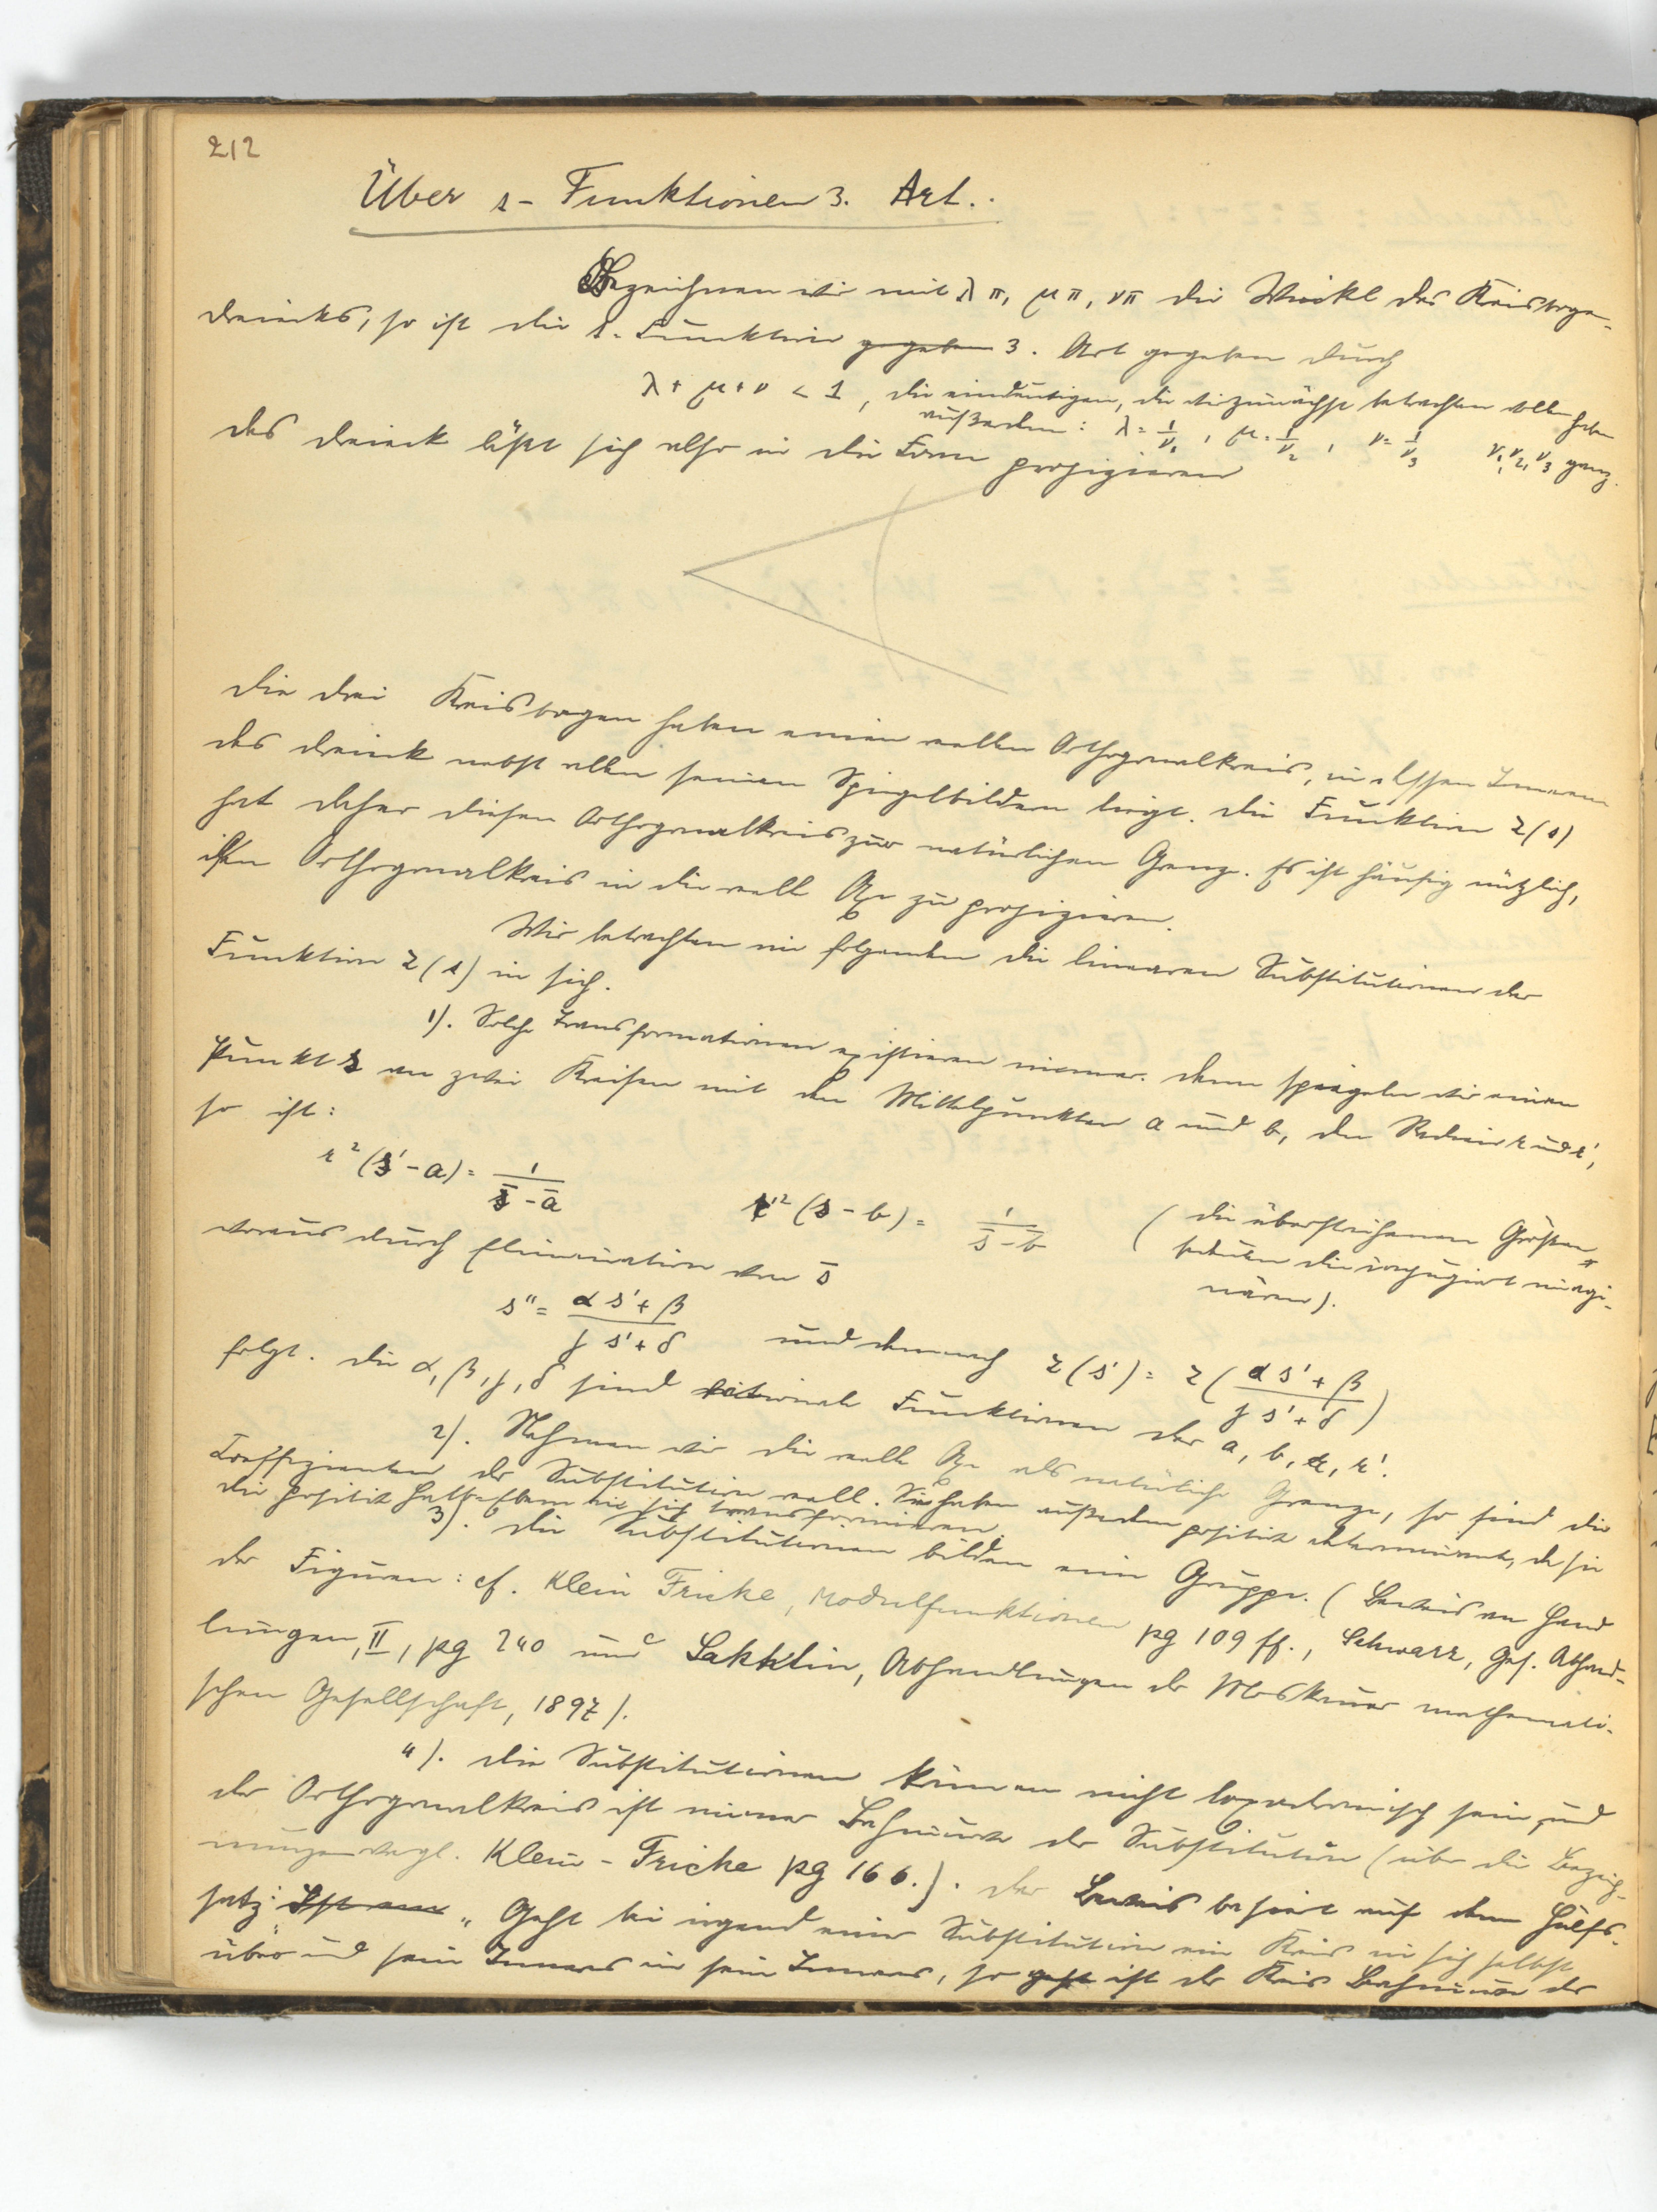 212
Über s-Funktionen 3. Art.
Bezeichnen wir mit λπ, μπ, νπ die Winkel des Kreisboge-
dreiecks, so ist die s-Funktion gegeben 3. Art gegeben durch
λ + μ + ν < 1, die eindeutigen, die wir zunächst betrachten wollen haben
außerdem: λ = 1/ν₁, μ = 1/ν₂, ν = 1/ν₃ ν₁, ν₂, ν₃ ganz.
das Dreieck läßt sich also in die Form projizieren
Die drei Kreisbogen haben einen reellen Orthogonalkreis, in dessen Innerem
das Dreieck nebst allen seinen Spiegelbildern liegt. Die Funktion z(s)
hat daher diesen Orthogonalkreis zur natürlichen Grenze. Es ist häufig nützlich,
den Orthogonalkreis in die reelle Axe zu projizieren.
Wir betrachten im folgenden die linearen Substitutionen der
Funktion z(s) in sich.
1). Solche Transformationen existieren immer. Denn spiegeln wir einen
Punkt s an zwei Kreisen mit den Mittelpunkten a und b, den Radien r und r',
so ist:
r²(s'-a) = 1/(s̄-ā) r'²(s-b) = 1/(s̄-b̄) (die überstrichenen Größen
bedeuten die conjugiert imagi-
nären).
woraus durch Elimination von s̄
s'' = (αs'+β)/(γs'+δ) und demnach z(s') = z((αs'+β)/(γs'+δ))
folgt. Die α, β, γ, δ sind rationale Funktionen der a, b, r, r'.
2). Nehmen wir die reelle Axe als natürliche Grenze, so sind die
Coeffizienten der Substitution reell. Sie haben außerdem positive Determinante, da sie
die positive Halbebene in sich transformieren.
3). Die Substitutionen bilden eine Gruppe. (Beweis an Hand
der Figuren: cf. Klein Fricke, Modulfunktionen pg 109 ff., Schwarz, Ges. Abhand-
lungen, II, pg 240 und Lakhtin, Abhandlungen der Moskauer mathemati-
schen Gesellschaft, 1897).
4). Die Substitutionen können nicht loxodromisch sein, und
der Orthogonalkreis ist immer Bahncurve der Substitution (über die Bezeich-
nungen vergl. Klein-Fricke pg 166.). Der Beweis basiert auf dem Hülfs-
satz: Ist ein „Geht bei irgend einer Substitution ein Kreis in sich selbst
über und sein Inneres in sein Inneres, so geht ist der Kreis Bahncurve der